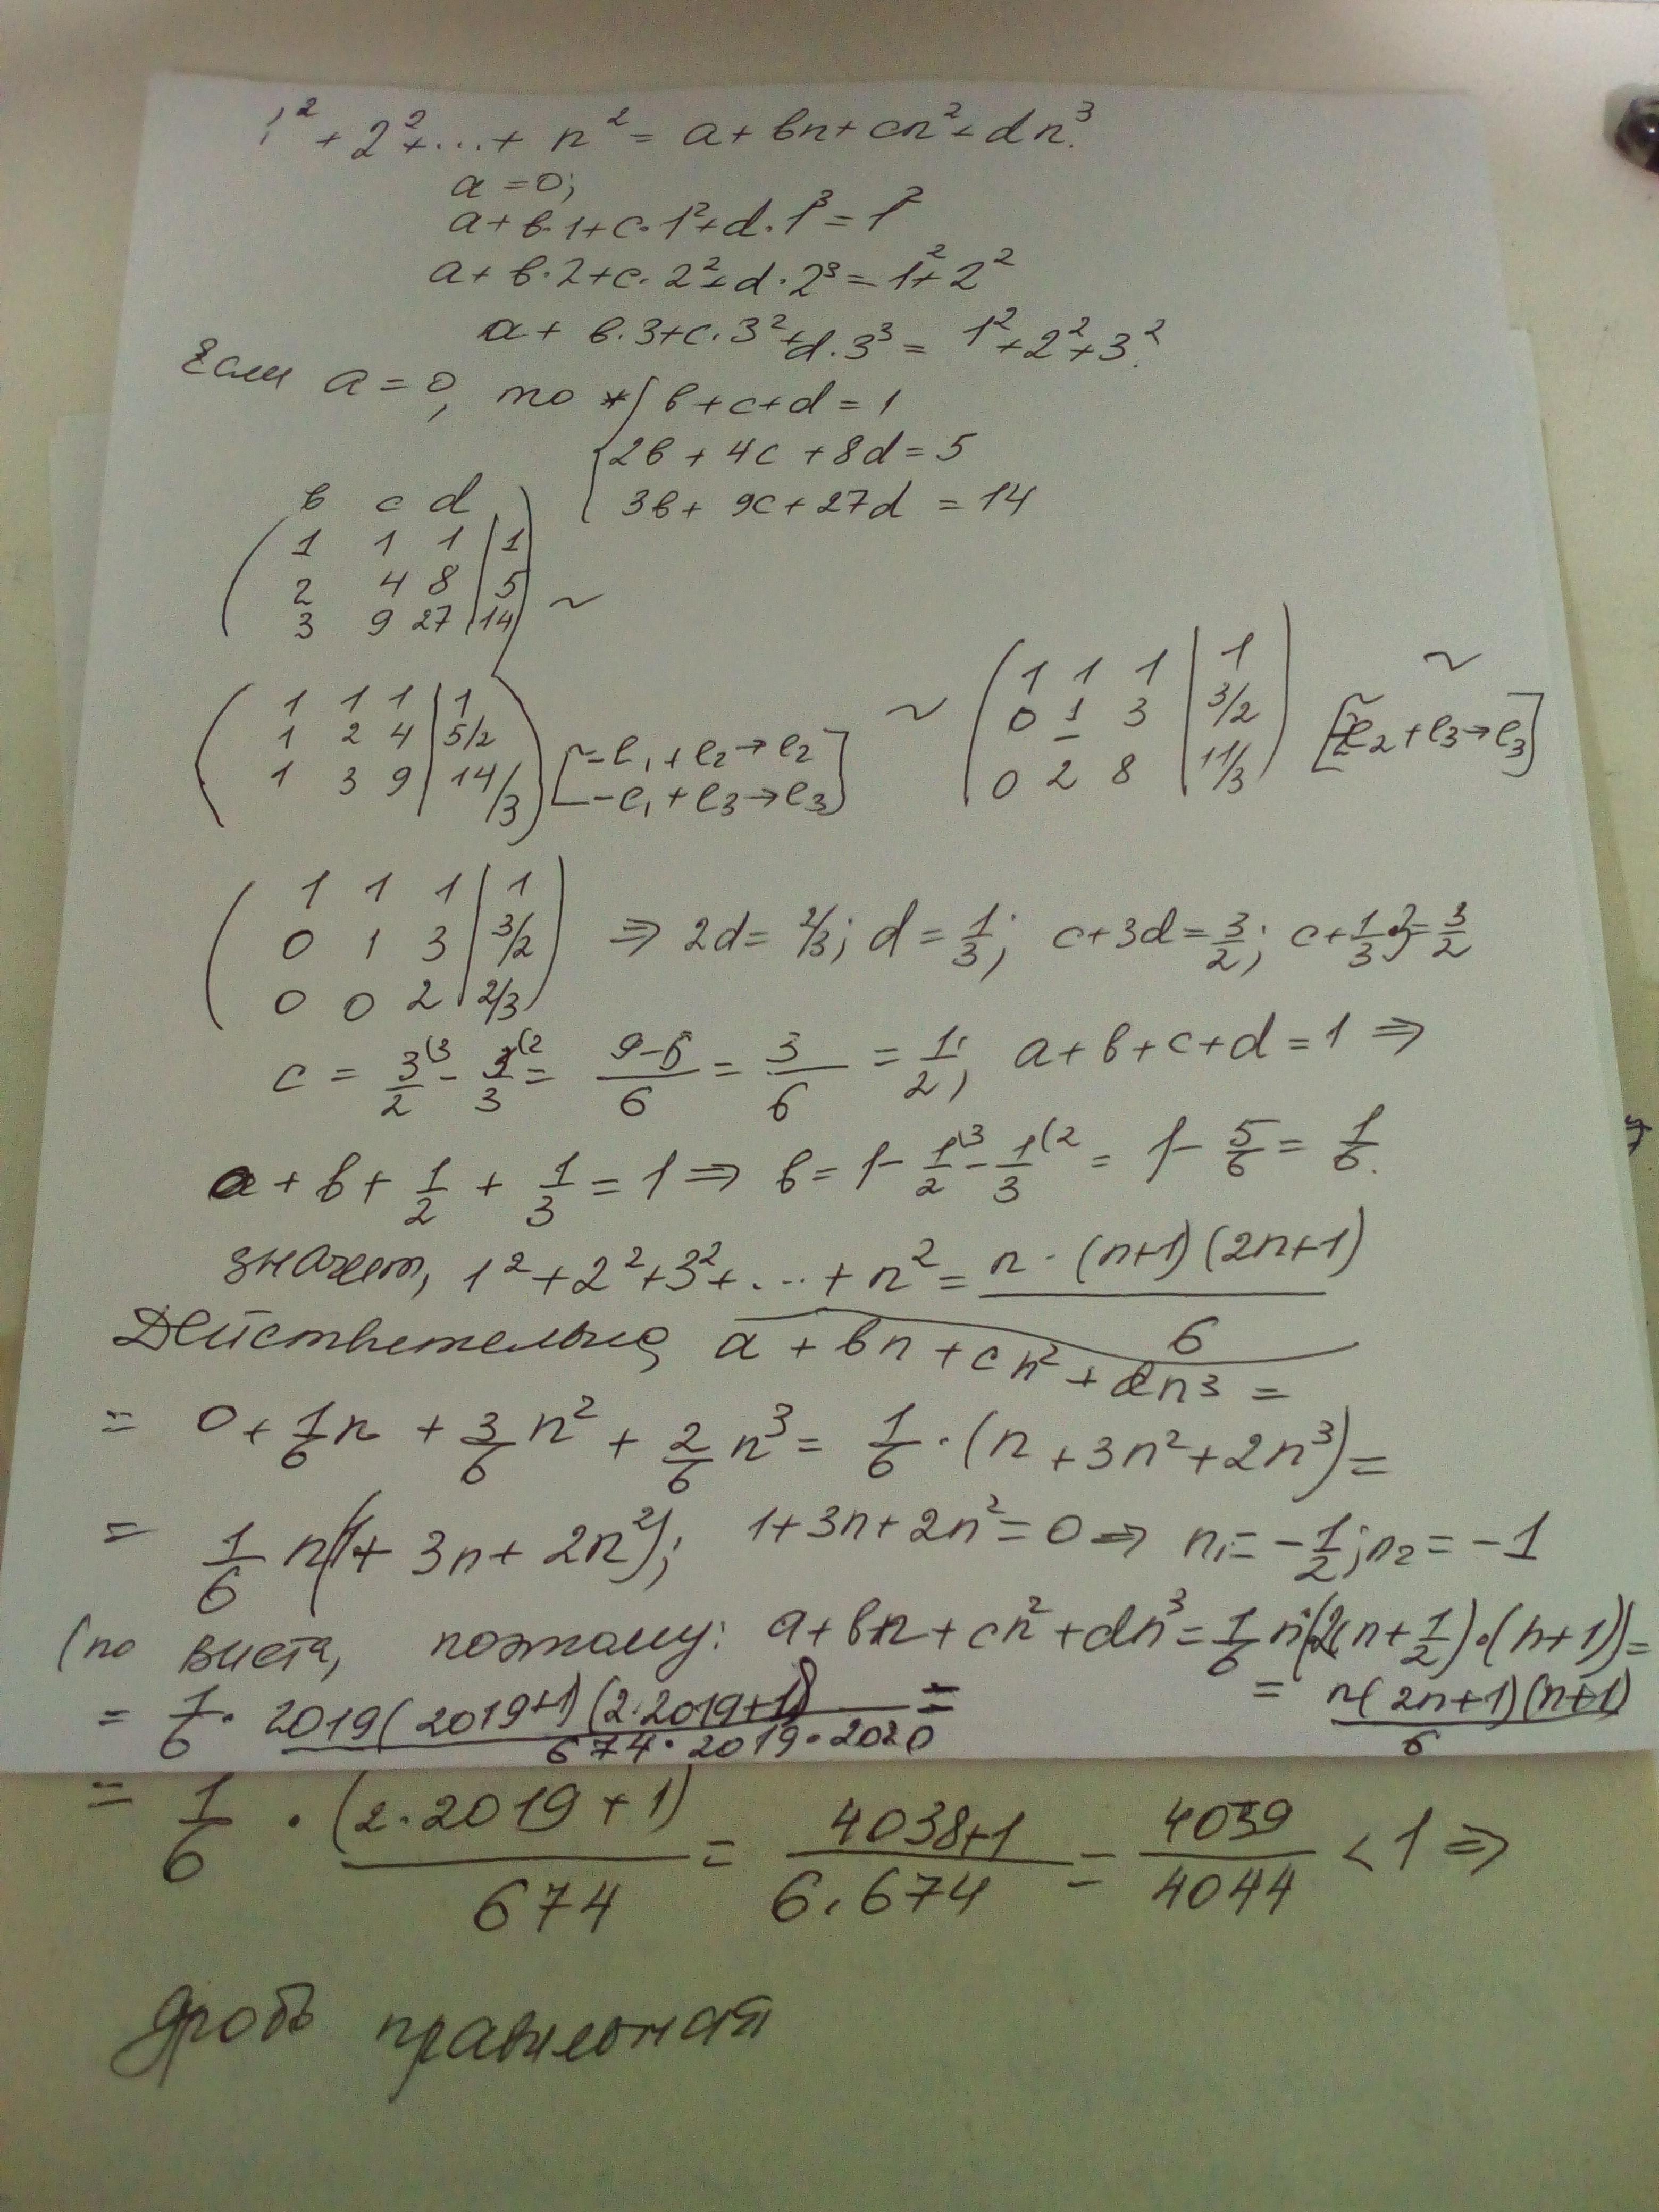 1² + 2² + ... + n² = a + bn + cn² + dn³.
a = 0;
a + b·1 + c·1² + d·1³ = 1²
a + b·2 + c·2² + d·2³ = 1² + 2²
a + b·3 + c·3² + d·3³ = 1² + 2² + 3².
Если a = 0, то * { b + c + d = 1
2b + 4c + 8d = 5
3b + 9c + 27d = 14
b c d
( 1 1 1 | 1
2 4 8 | 5
3 9 27 | 14 ) ~
( 1 1 1 | 1
1 2 4 | 5/2
1 3 9 | 14/3 ) [ -l₁ + l₂ → l₂
-l₁ + l₃ → l₃ ]
~ ( 1 1 1 | 1
0 1 3 | 3/2
0 2 8 | 11/3 ) ~ [ -2l₂ + l₃ → l₃ ]
( 1 1 1 | 1
0 1 3 | 3/2
0 0 2 | 2/3 ) ⇒ 2d = 2/3; d = 1/3; c + 3d = 3/2; c + 1/3·3 = 3/2
c = 3/2 (3 - 3/3 (2 = 9-6/6 = 3/6 = 1/2; a + b + c + d = 1 ⇒
a + b + 1/2 + 1/3 = 1 ⇒ b = 1 - 1/2 (3 - 1/3 (2 = 1 - 5/6 = 1/6.
значит, 1² + 2² + 3² + ... + n² = n·(n+1)(2n+1)/6
Действительно, a + bn + cn² + dn³ =
= 0 + 1/6 n + 3/6 n² + 2/6 n³ = 1/6 · (n + 3n² + 2n³) =
= 1/6 n(1 + 3n + 2n²); 1 + 3n + 2n² = 0 ⇒ n₁ = -1/2; n₂ = -1
(по виета, поэтому: a + bn + cn² + dn³ = 1/6 n·(2(n + 1/2)·(n+1)) =
= n(2n+1)(n+1)/6
= 1/6 · 2019(2019+1)(2·2019+1)/674·2019·2020 =
= 1/6 · (2·2019+1)/674 = 4038+1/6·674 = 4039/4044 < 1 ⇒
дробь правильная